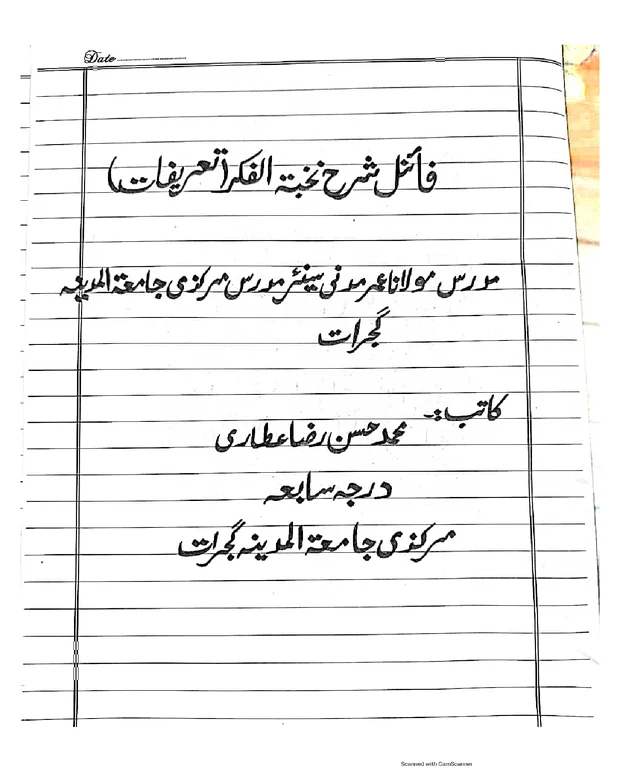 Date
فائنل شرح نخبۃ الفکر (تعریفات)
مدرس مولانا عمر مدنی سینئر مدرس مرکزی جامعۃ المدینہ
گجرات
کاتب:۔
محمد حسن رضا عطاری
درجہ سابعہ
مرکزی جامعۃ المدینہ گجرات
Scanned with CamScanner